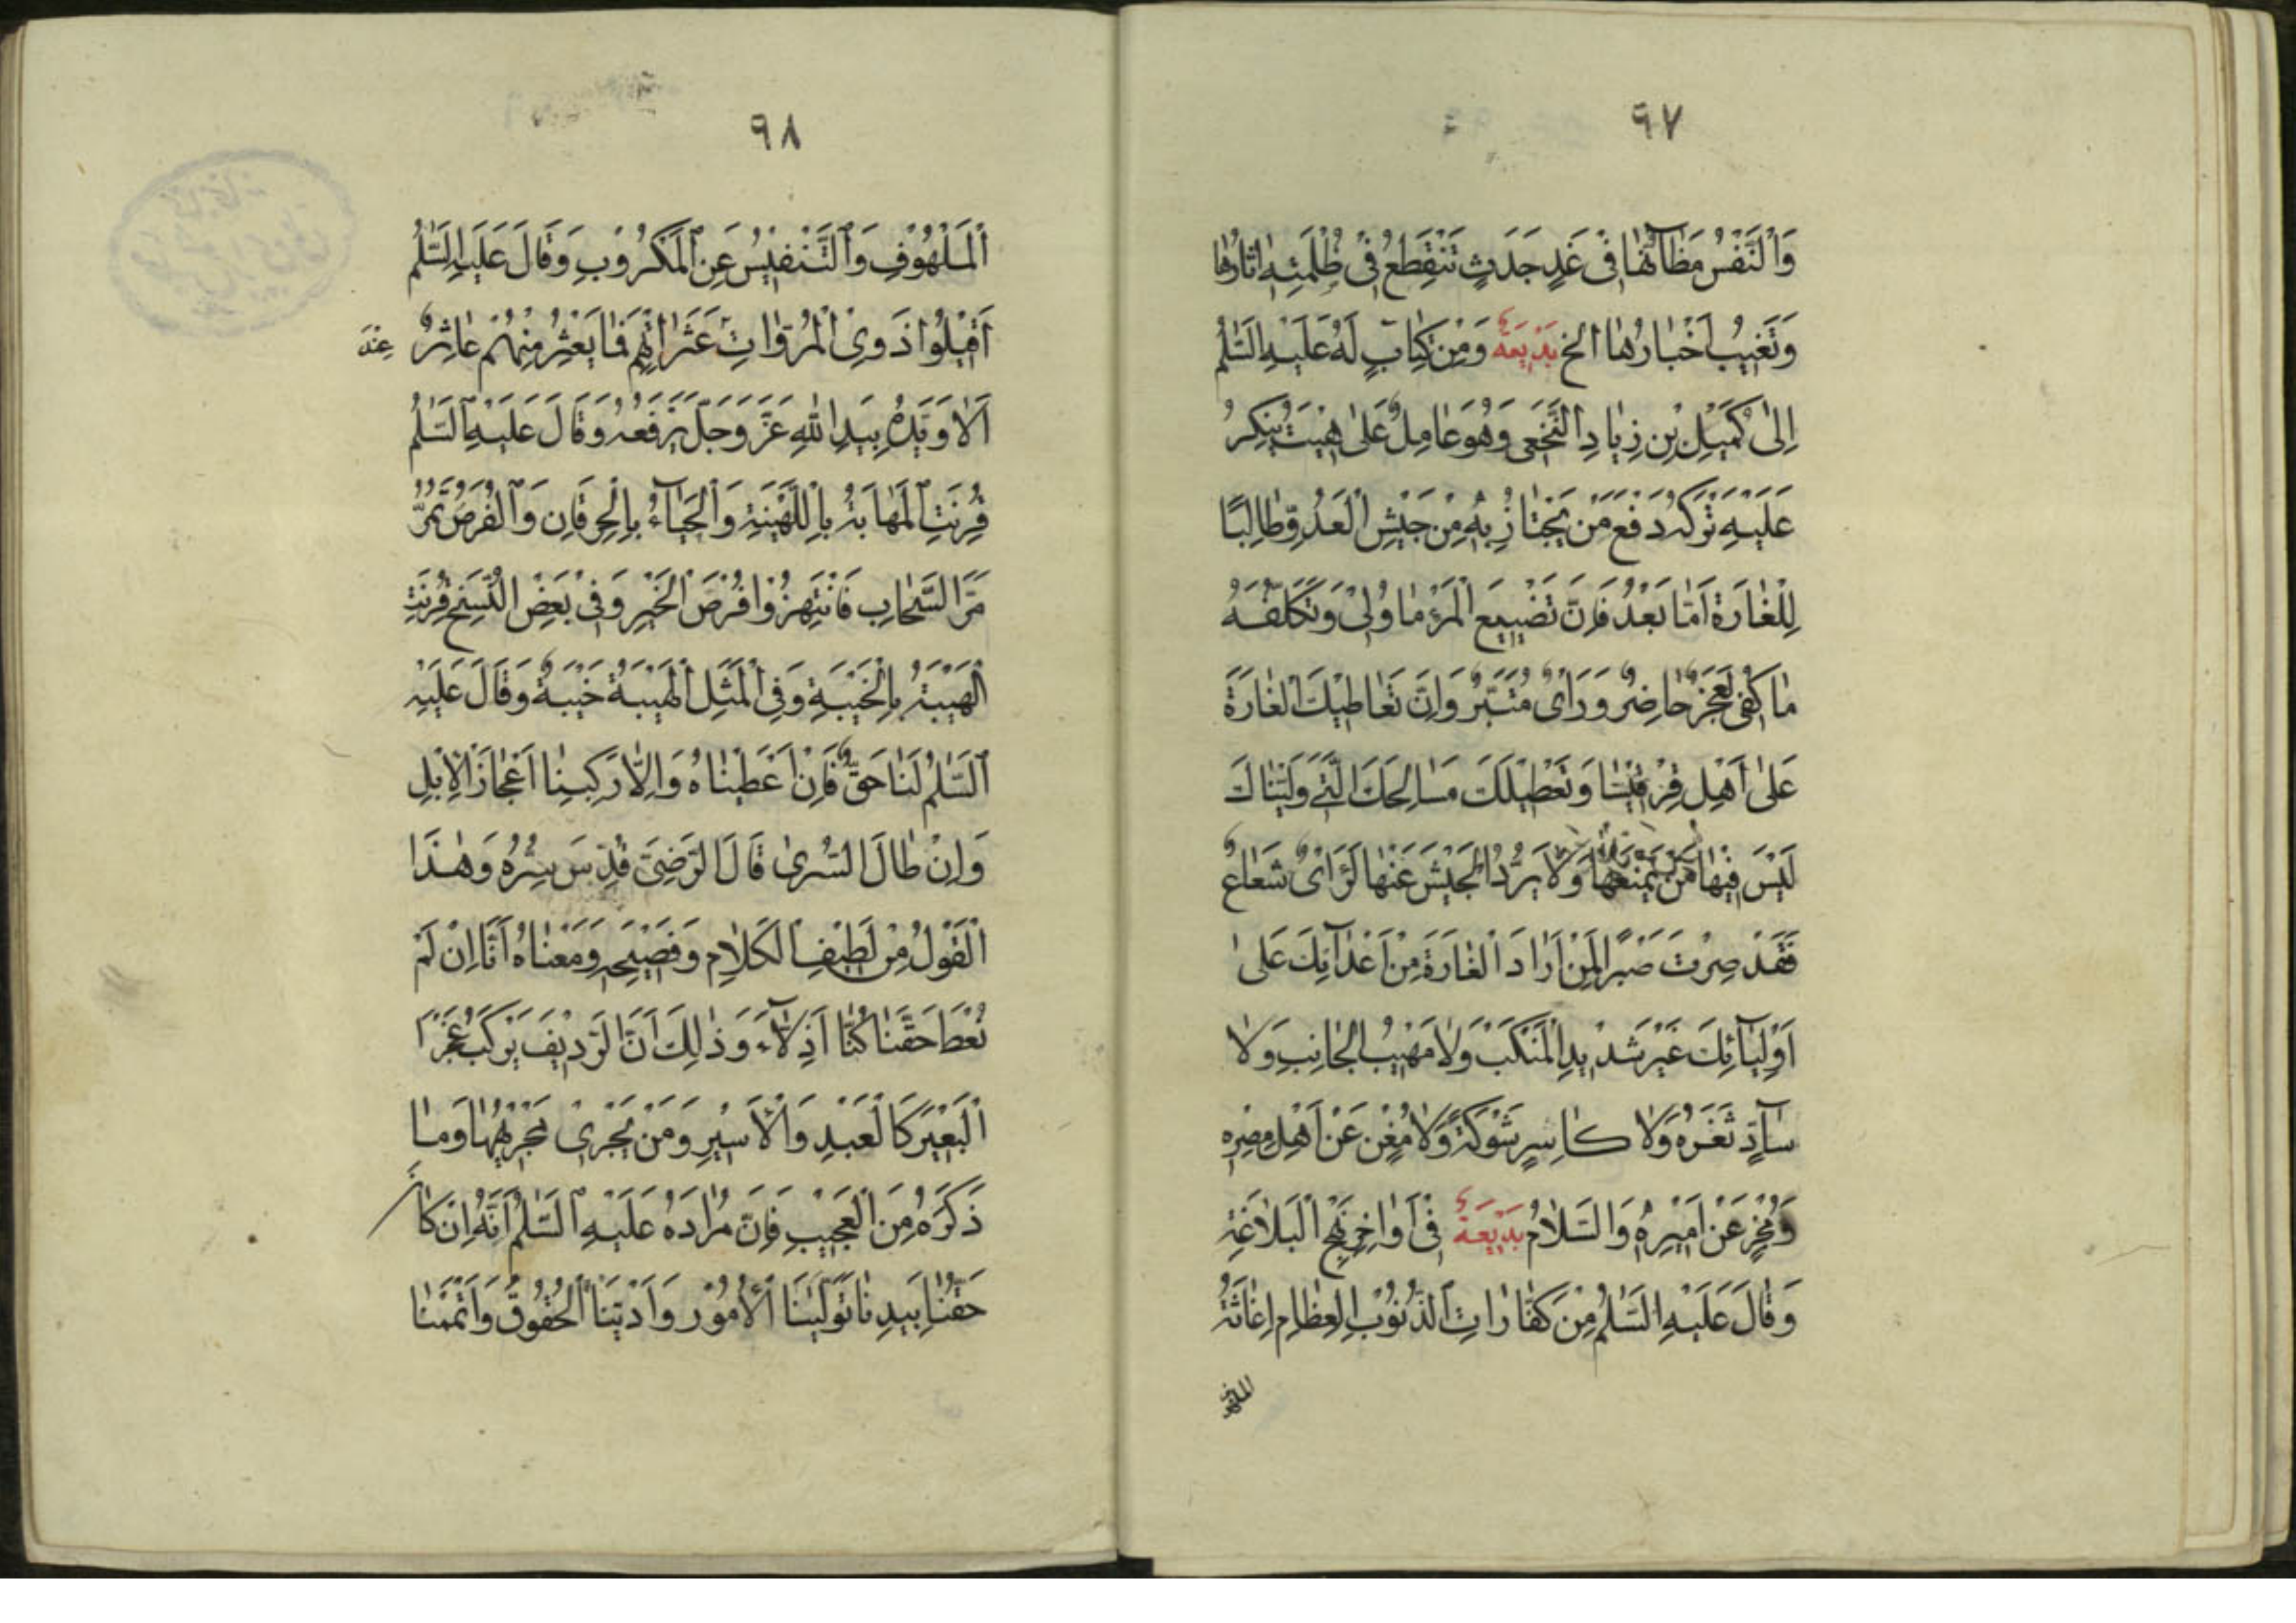 ٩٧
وَالنَّفْسُ مَظَآنُّهٰا فِی غَدٍ جَدَثٍ تَنْقَطِعُ فِی ظُلْمَتِهِ اٰثارُهٰا
وَتَغیٖبُ اَخْبٰارُهٰا الخ بَدیٖعَةٌ وَمِنْ کِتٰابٍ لَهُ عَلَیْهِ السَّلٰمُ
اِلیٰ کُمَیْلِ بْنِ زِیٰادِ النَّخَعی وَهُوَ عٰامِلٌ عَلیٰ هیٖتَ یُنْکِرُ
عَلَیْهِ تَرْکَهُ دَفْعَ مَنْ یَجْتٰازُ بِهِ مِنْ جَیْشِ الْعَدُوِّ طٰالِبًا
لِلْغٰارَةِ اَمّٰا بَعْدُ فَاِنَّ تَضْییٖعَ الْمَرْءِ مٰا وُلِّیَ وَتَکَلُّفَهُ
مٰا کُفِیَ لَعَجْزٌ حٰاضِرٌ وَرَأیٌ مُتَبَّرٌ وَاِنَّ تَعٰاطیٖکَ الْغٰارَةَ
عَلیٰ اَهْلِ قِرْقیٖسٰا وَتَعْطیٖلَکَ مَسٰالِحَکَ الَّتی وَلَّیْنٰاکَ
لَیْسَ فیٖهٰا مَنْ یَمْنَعُهٰا وَلٰا یَرُدُّ الْجَیْشَ عَنْهٰا لَرَأیٌ شَعٰاعٌ
فَقَدْ صِرْتَ صَبْرًا لِمَنْ اَرٰادَ الْغٰارَةَ مِنْ اَعْدٰآئِکَ عَلیٰ
اَوْلِیٰآئِکَ غَیْرَ شَدیٖدِ الْمَنْکَبِ وَلٰا مَهیٖبِ الْجٰانِبِ وَلٰا
سٰآدٍّ ثَغْرَهُ وَلٰا کٰاسِرٍ شَوْکَةً وَلٰا مُغْنٍ عَنْ اَهْلِ مِصْرِهِ
وَمُجْزٍ عَنْ اَمیٖرِهِ وَالسَّلٰامُ بَدیٖعَةٌ فی اَوٰاخِرِ نَهْجِ الْبَلٰاغَةِ
وَقٰالَ عَلَیْهِ السَّلٰمُ مِنْ کَفّٰارٰاتِ الذُّنُوبِ الْعِظٰامِ اِغٰاثَةُ
الملهوف
٩٨
الْمَلْهُوفِ وَالتَّنْفیٖسُ عَنِ الْمَکْرُوبِ وَقٰالَ عَلَیْهِ السَّلٰمُ
اَقیٖلُوا ذَوِی الْمُرُوّٰاتِ عَثَرٰاتِهِمْ فَمٰا یَعْثُرُ مِنْهُمْ عٰاثِرٌ
اَلٰا وَیَدُهُ بِیَدِ اللّٰهِ عَزَّ وَجَلَّ یَرْفَعُهُ وَقٰالَ عَلَیْهِ السَّلٰمُ
قُرِنَتِ الْمَهٰابَةُ بِالْهَیْبَةِ وَالْحَیٰآءُ بِالْحِرْفٰانِ وَالْفُرَصُ تَمُرُّ
مَرَّ السَّحٰابِ فَانْتَهِزُوا فُرَصَ الْخَیْرِ وَفِی بَعْضِ النُّسَخِ قُرِنَتِ
الْهَیْبَةُ بِالْخَیْبَةِ وَفِی الْمَثَلِ الْهَیْبَةُ خَیْبَةٌ وَقٰالَ عَلَیْهِ
السَّلٰمُ لَنٰا حَقٌّ فَاِنْ اُعْطیٖنٰاهُ وَاِلّٰا رَکِبْنٰا اَعْجٰازَ الْاِبِلِ
وَاِنْ طٰالَ السُّریٰ قٰالَ الرَّضِیُّ قُدِّسَ سِرُّهُ وَهٰذَا
الْقَوْلُ مِنْ لَطیٖفِ الْکَلٰامِ وَفَصیٖحِهِ وَمَعْنٰاهُ اَنّٰا اِنْ لَمْ
نُعْطَ حَقَّنٰا کُنّٰا اَذِلّٰآءَ وَذٰلِکَ اَنَّ الرَّدیٖفَ یَرْکَبُ عَجُزَ
الْبَعیٖرِ کَالْعَبْدِ وَالْاَسیٖرِ وَمَنْ یَجْریٖ مَجْرٰیهُمٰا وَمٰا
ذَکَرَهُ مِنَ الْعَجیٖبِ فَاِنَّ مُرٰادَهُ عَلَیْهِ السَّلٰمُ اَنَّهُ اِنْ کٰانَ
حَقُّنٰا بِیَدِنٰا تَوَلَّیْنَا الْاُمُورَ وَاَدَّیْنَا الْحُقُوقَ وَاَتْمَمْنٰا